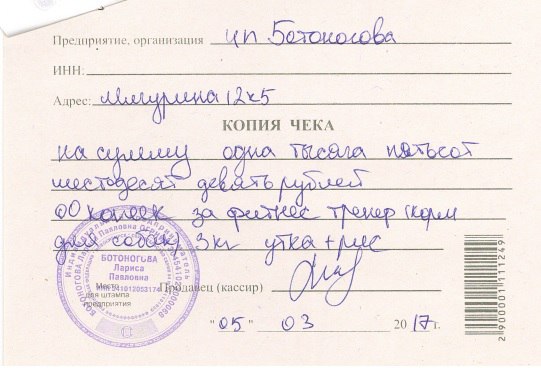 Предприятие, организация ИП Ботоногова
ИНН:
Адрес: Мичурина 12к5
КОПИЯ ЧЕКА
на сумму одна тысяча пятьсот
шестьдесят девять рублей
00 копеек за фитнес тренер (корм
для собак) 3кг утка + рис
БОТОНОГОВА
Лариса
Павловна
Место
для штампа
предприятия
Продавец (кассир)
"05" 03 2017г.
2900001111249